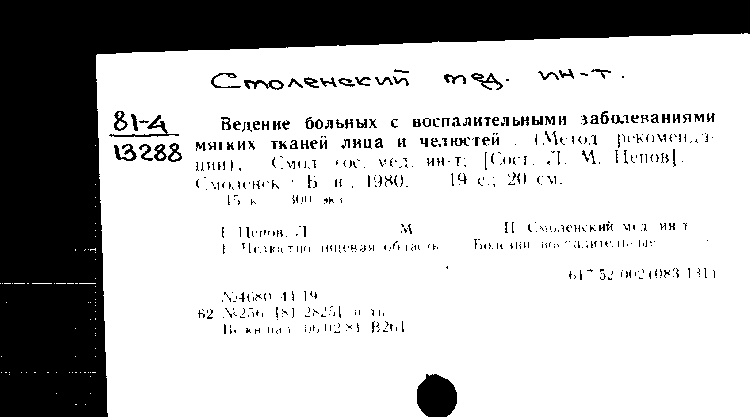 Смоленский мед. ин-т.
81-4
13288
Ведение больных с воспалительными заболеваниями
мягких тканей лица и челюстей. (Метод. рекоменда-
ции). Смол. гос. мед. ин-т; [Сост. Л. М. Цепов].
Смоленск : Б. и., 1980. 19 с.; 20 см.
15 к. 300 экз.
I. Цепов, Л М II. Смоленский мед. ин-т
1. Челюстно-лицевая область Болезни воспалительные
617.52-002(083.131)
№4680 44 19
62 №256 [81-28251] п
Вс. кн. пал. 06.02.81 В261